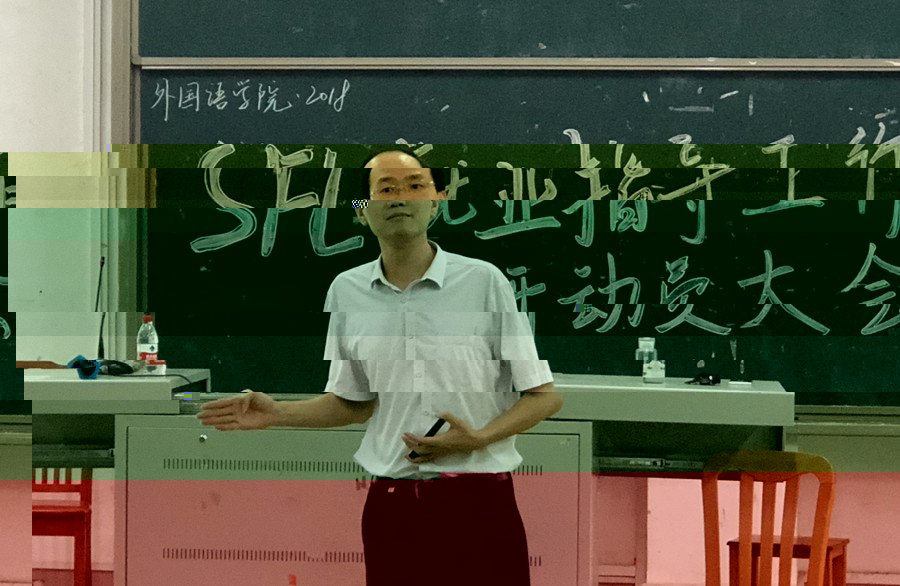 外国语学院·2018
SFL 就业指导工作
动员大会